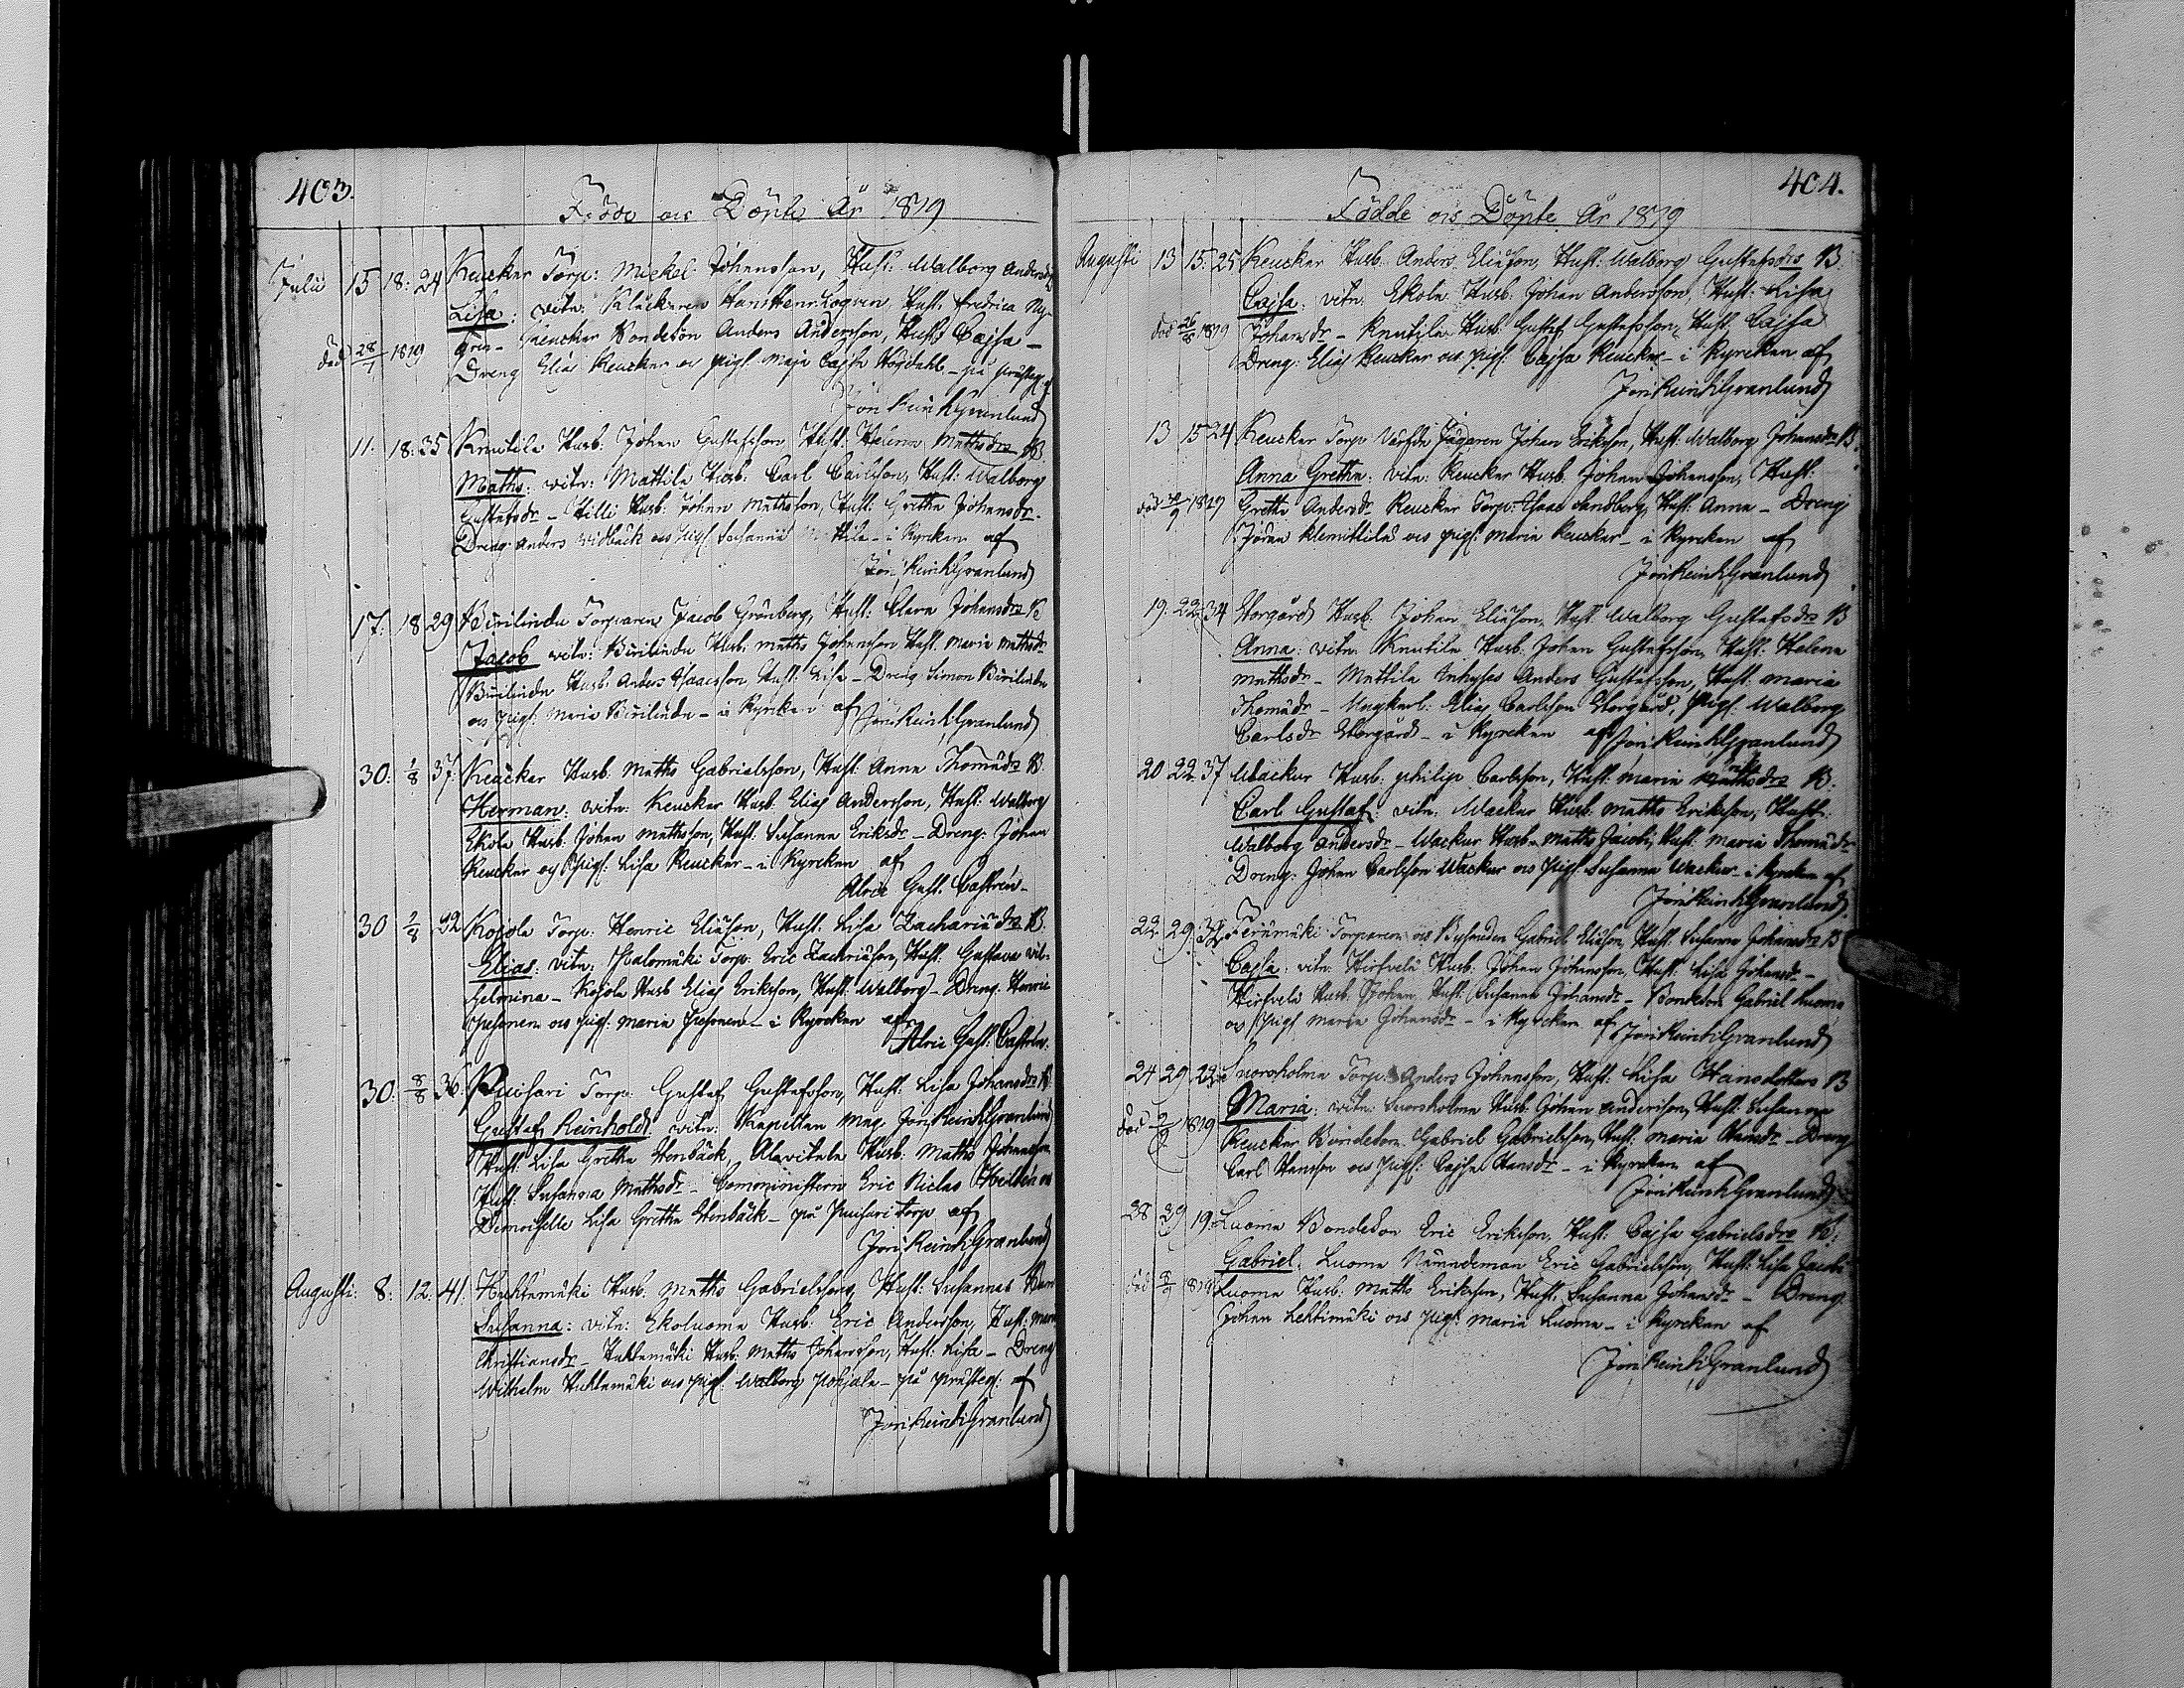 403.
Födde och Döpte År 1819
Julii 15 18: 24 Keuckar Torp: Mickel Johansson, Hust: Walborg Andersdrs
Lisa: vitn: Klåckaren Hans Henr: Hust: Fredrica
Keuckar Bondeson Anders Andersson, Hust: Cajsa –
död 28/7 1819 Dreng Elias Keuckar och pig: Maja Cajsa Högdahl – på prästeg: af
Jon Reinh Granlund
11. 18: 35 Knutila Husb: Johan Gustafsson Hust: Helena Mathsdrs B:
Maths: vitn: Mattila Husb: Carl Carlsson, Hust: Walborg
Gustafsdr – Hilli Husb: Johan Mathsson, Hust: Gretha Johansdr –
Dreng: Anders Widbäck och pig: Susanna Mattila – i Kyrckan af
Jon Reinh Granlund
17: 18 29 Bürilinda Torparen Jacob Grönberg, Hust: Clara Johansdrs B
Jacob vitn: Bürilinda Husb: Maths Johansson Hust: Maria Mathsdr
Bürilinda Husb: Anders Isaacsson Hust: Lisa – Dreng Simon Bürilinda
och pig: Maria Bürilinda – i Kyrckan af Jon Reinh Granlund
30: 1/8 37 Keuckar Husb: Maths Gabrielsson, Hust: Anna Thomædrs B:
Herman: vitn: Keuckar Husb: Elias Andersson, Hust: Walborg
Ekola Husb: Johan Mathsson, Hust: Susanna Eriksdr – Dreng: Johan
Keuckar och Pig: Lisa Keuckar – i Kyrckan af
Alric Gust: Castrén –
30 1/8 32 Kojola Torp: Henric Eliæson, Hust: Lisa Zachariædrs B:
Elias: vitn: Torp: Eric Zachriæson, Hust: Gustava Wil-
helmina – Kojola Husb Elias Eriksson, Hust: Walborg – Dreng: Henric
Pesonen och pig: Maria Pesonen – i Kyrckan af
Alric Gust: Castrén:
30: 8/8 36 Puisaari Torp: Gustaf Gustafsson, Hust: Lisa Johansdrs B
Gustaf Reinhold: vitn: Kapellan Mag Jon Reinh Granlund
Hust: Lisa Gretha Stenbäck, Alavitala Husb: Maths Johansson
Hust: Susanna Mathsdr – Comministern Eric Niclas och
Demoiselle Lisa Gretha Stenbäck – på Puisaari torp af
Jon Reinh Granlund
Augusti: 8: 12: 41: Huhtamäki Husb: Maths Gabrielsson, Hust: Susannas Barn
Susanna: vitn: Ekoluoma Husb: Eric Andersson, Hust: Maria
Christiansdr – Huhtamäki Husb: Maths Johansson, Hust: Lisa – Dreng
Wilhelm Huhtamäki och pig: Walborg Pohjala – på prästeg: af
Jon Reinh Granlund
404.
Födde och Döpte År 1819
Augusti 13 15: 25 Keuckar Husb: Anders Eliæson, Hust: Walborg Gustafsdrs B:
Cajsa: vitn: Ekola Husb: Johan Andersson, Hust: Lisa
död 26/8 1819 Johansdr – Knutila Husb: Gustaf Gustafsson, Hust: Cajsa
Dreng: Elias Keuckar och pig: Cajsa Keuckar – i Kyrckan af
Jon Reinh Granlund
13 15 24 Keuckar Torp Jägaren Johan Eriksson, Hust: Walborg Johansdrs B:
Anna Gretha: vitn: Keuckar Husb: Johan Johansson, Hust:
död 1819 Gretha Andersdr Keuckar Torp: Isaac Sandberg, Hust: Anna – Dreng
Jöran Klemittilä och pig: Maria Keuckar – i Kyrckan af
Jon Reinh Granlund
19: 22: 34 Storgård Husb: Johan Eliæson, Hust: Walborg Gustafsdrs B
Anna: vitn: Knutila Husb: Johan Gustafsson, Hust: Helena
Mathsdr – Mattila Inhyses Anders Gustafsson, Hust: Maria
Thomædr – Ungkarl: Elias Carlsson Storgård, Pig: Walborg
Carlsdr Storgård – i Kyrckan af Jon Reinh Granlund
20 22: 37 Wackur Husb: Philip Carlsson, Hust: Maria B:
Carl Gustaf: vitn: Wackur Husb: Maths Eriksson, Hust:
Walborg Andersdr – Wackur Husb: Maths Jacobs, Hust: Maria Thomædr
Dreng: Johan Carlsson Wackur och pig: Susanna Wackur – i Kyrckan af
Jon Reinh Granlund
22: 29: 32 Torparen och Bysmeden Gabriel Eliæson, Hust: Susanna Johansdrs B
Cajsa: vitn: Hirsvelä Husb: Johan Johansson, Hust: Lisa Johansdr –
Hirsvelä Husb: Johan, Hust: Susanna Johansdr – Bondeson Gabriel Luoma
och Pig Maria Johansdr – i Kyrckan af Jon Reinh Granlund
24 29 22 Snorsholma Torp: Anders Johansson, Hust: Lisa Hansdotters B
Maria: vitn: Snorsholma Husb: Johan Andersson, Hust: Susanna
död 2/9 1819 Keuckar Bondeson Gabriel Gabrielsson, Hust: Maria Hansdr – Dreng
Carl Hansson och pig: Cajsa Hansdr – i Kyrckan af
Jon Reinh Granlund
28 29 19 Luoma Bondeson Eric Eriksson, Hust: Cajsa Gabrielsdrs B:
Gabriel: Luoma Nämndeman Eric Gabrielsson, Hust: Lisa Jacobs
död 8/9 1819 Luoma Husb: Maths Eriksson, Hust: Susanna Johansdr – Dreng:
Johan Lehtimäki och pig: Maria Luoma – i Kyrckan af
Jon Reinh Granlund